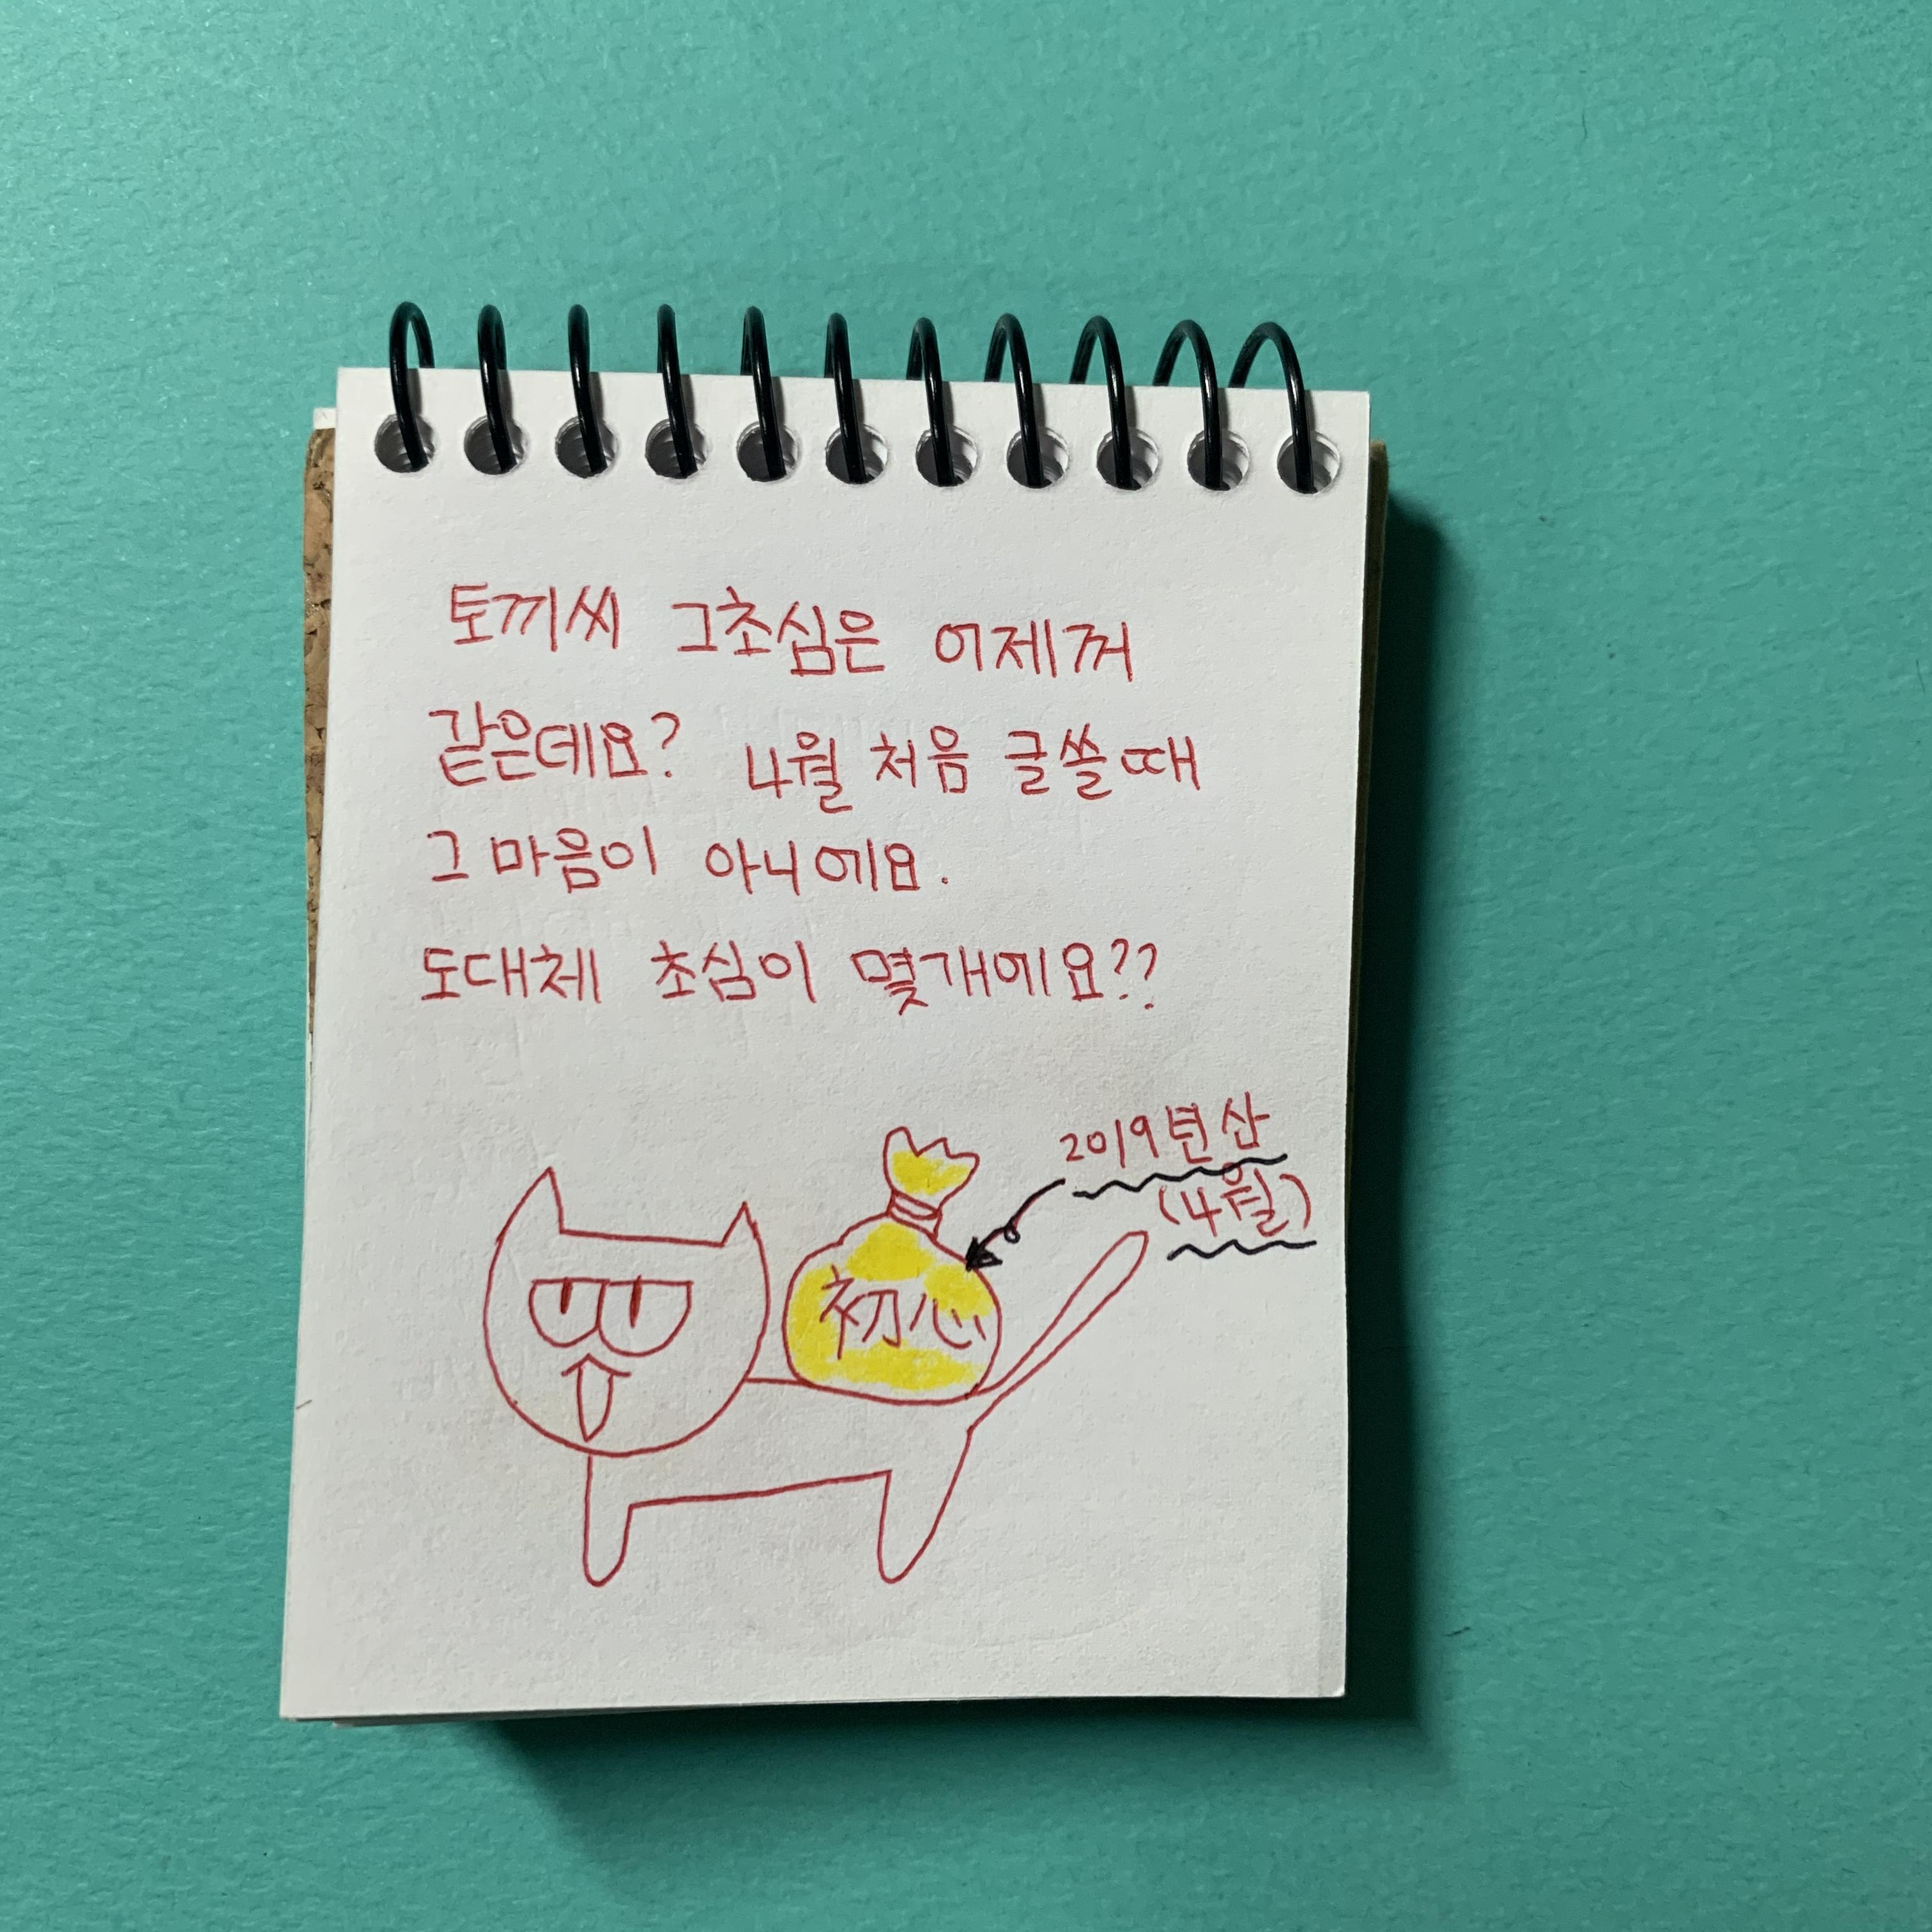 토끼씨 그초심은 어제꺼
같은데요? 4월 처음 글쓸때
그 마음이 아니에요.
도대체 초심이 몇개에요??
2019년산
(4월)
初心